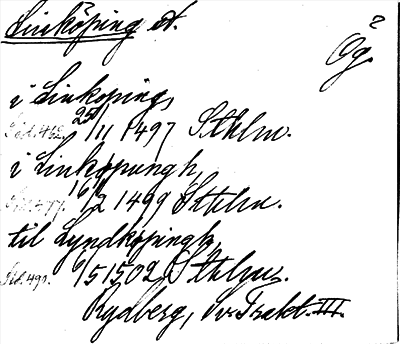 Linköping st. Ög. 2
i Linkoping,
Sid. 462. 25/11 1497 Sthlm.
i Linkopungh,
Sid. 477. 16/2 1499 Sthlm.
til Lyndköpingh,
Sid. 490. 6/5 1502 Sthlm.
Rydberg, Sv. Trakt. III.